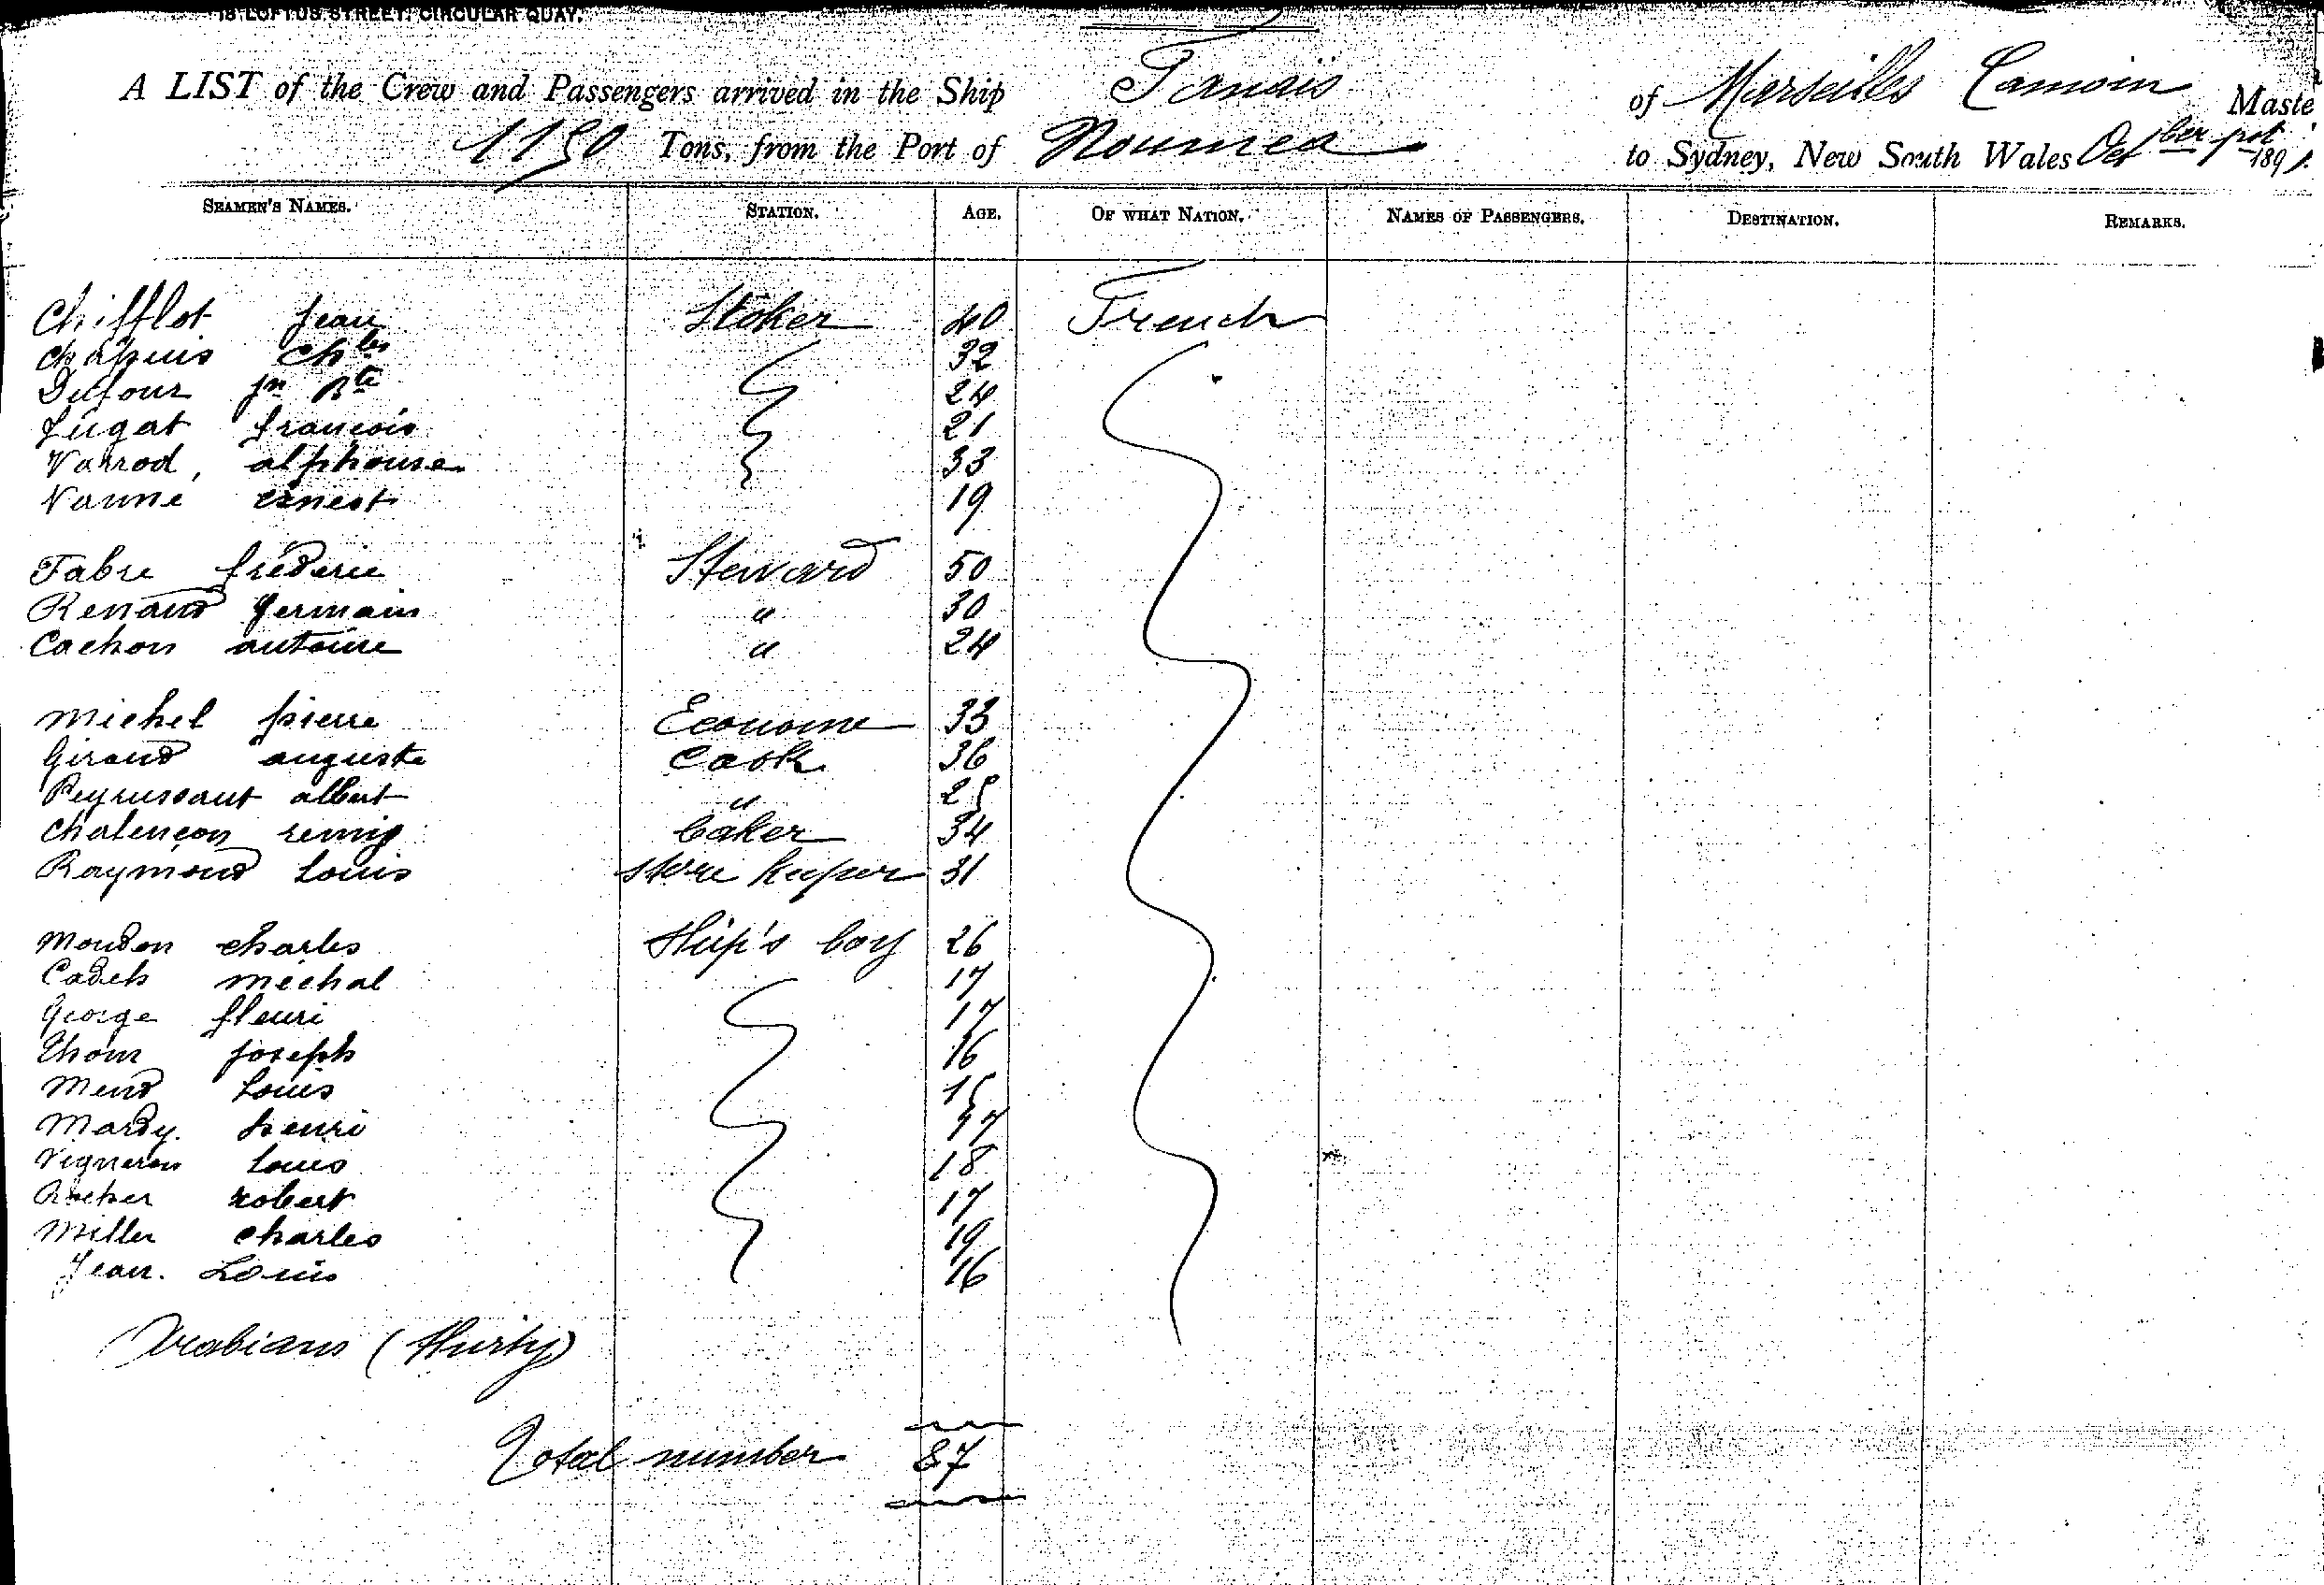 18 LOFTUS STREET, CIRCULAR QUAY.
A LIST of the Crew and Passengers arrived in the Ship Tanais of Marseilles Camoin Maste
1150 Tons, from the Port of Noumea to Sydney, New South Wales Octber 1st 1891.
SEAMEN'S NAMES. STATION. AGE. OF WHAT NATION. NAMES OF PASSENGERS. DESTINATION. REMARKS.
Chifflot Jean Stoker 40 French
Chapuis Chles 32
Dufour Jn Bte 24
Lugat françois 21
Varrod, alphonse 33
Vanné ernest 19
Fabre fréderic Steward 50
Renaud Germain " 30
Cachon antoine " 24
Michel pierre Econome 33
Giraud auguste Cook 36
Peyrussaut albert " 25
Chalençon remig baker 34
Raymond Louis store keeper 31
Moudon charles Ship's boy 26
Cadets michal 17
George fleuri 17
Thom joseph 16
Mend Louis 15
Mardy. henri 17
Vigneron Louis 18
Rocher robert 17
Miller charles 19
Jean. Louis 16
Arabians (thirty)
Total number 87